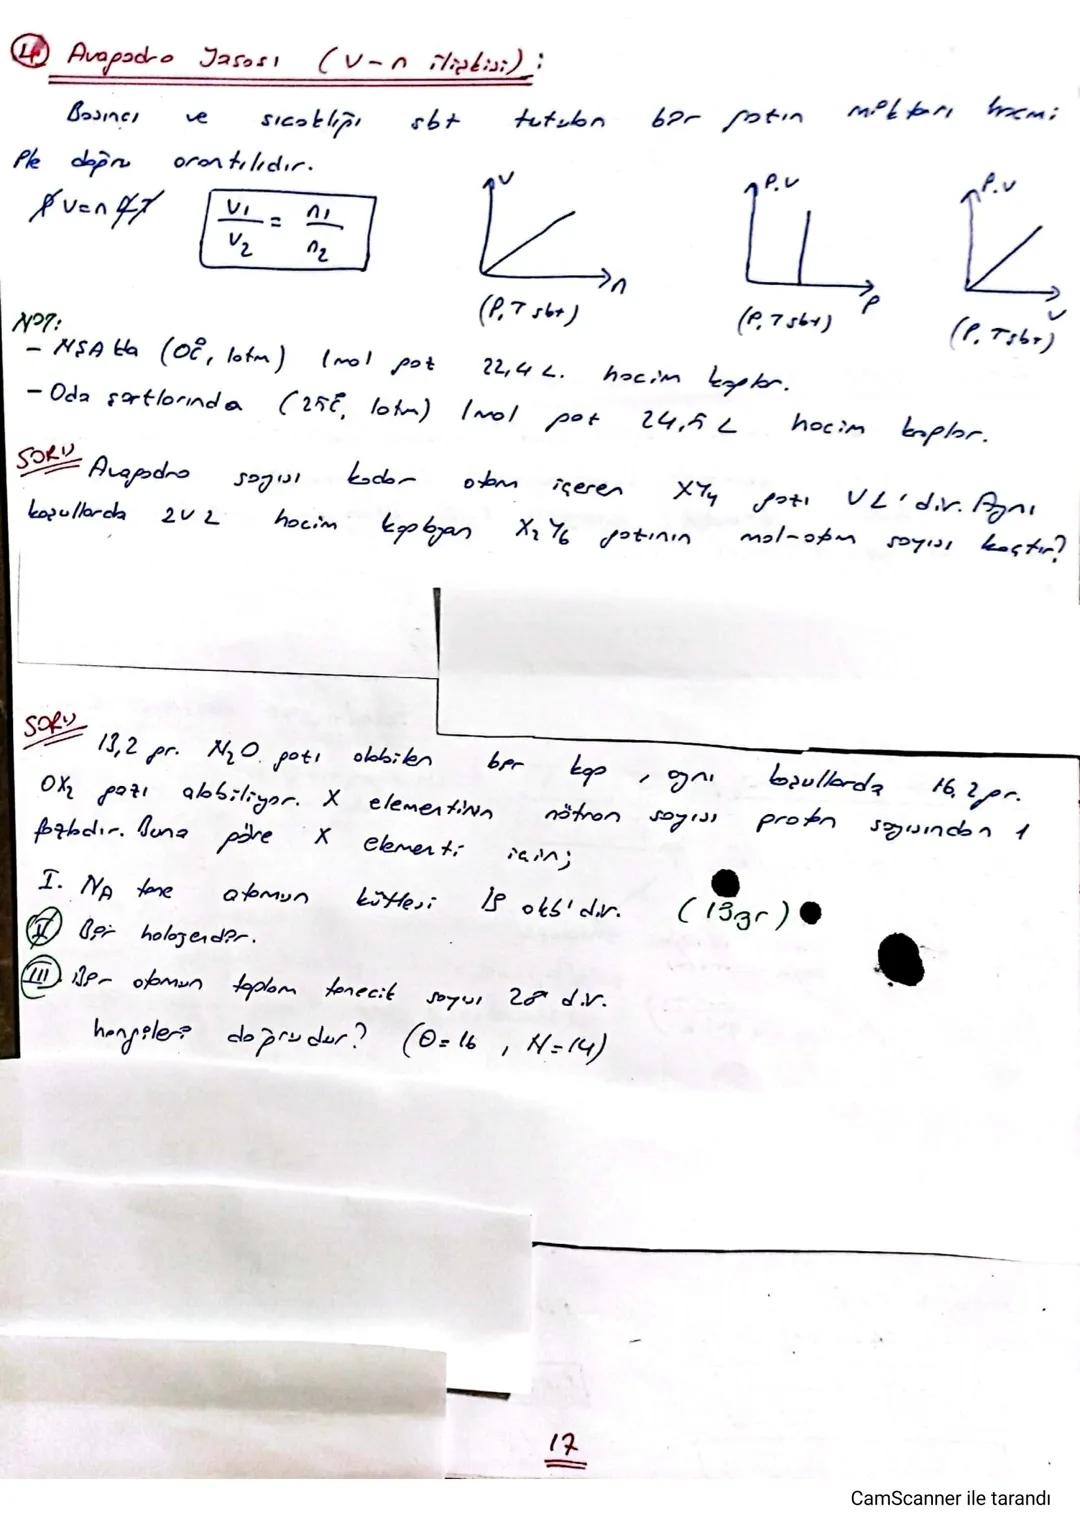 4 Avagadro Yasası (V-n ilişkisi):
Basıncı ve sıcaklığı sbt tutulan bir gazın miktarı hacmi
ile doğru orantılıdır.
PV=nRT V1/V2 = n1/n2
V n (P,T sbt) P.V P (P,T sbt) P.V V (P,T sbt)
NOT:
- NŞA'da (0°C, 1atm) 1mol gaz 22,4 L. hacim kaplar.
- Oda şartlarında (25°C, 1atm) 1mol gaz 24,5 L hacim kaplar.
SORU Avagadro sayısı kadar atom içeren XY4 gazı VL'dir. Aynı
koşullarda 2VL hacim kaplayan X2Y6 gazının mol-atom sayısı kaçtır?
SORU 13,2 gr. N2O gazı alabilen bir kap, aynı koşullarda 16,2 gr.
OX2 gazı alabiliyor. X elementinin nötron sayısı proton sayısından 1
fazladır. Buna göre X elementi için;
I. NA tane atomun kütlesi 19 akb'dir. (19gr)
II Bir halojendir.
III. Bir atomun toplam tanecik sayısı 28 dir.
hangileri doğrudur? (O=16, N=14)
17
CamScanner ile tarandı